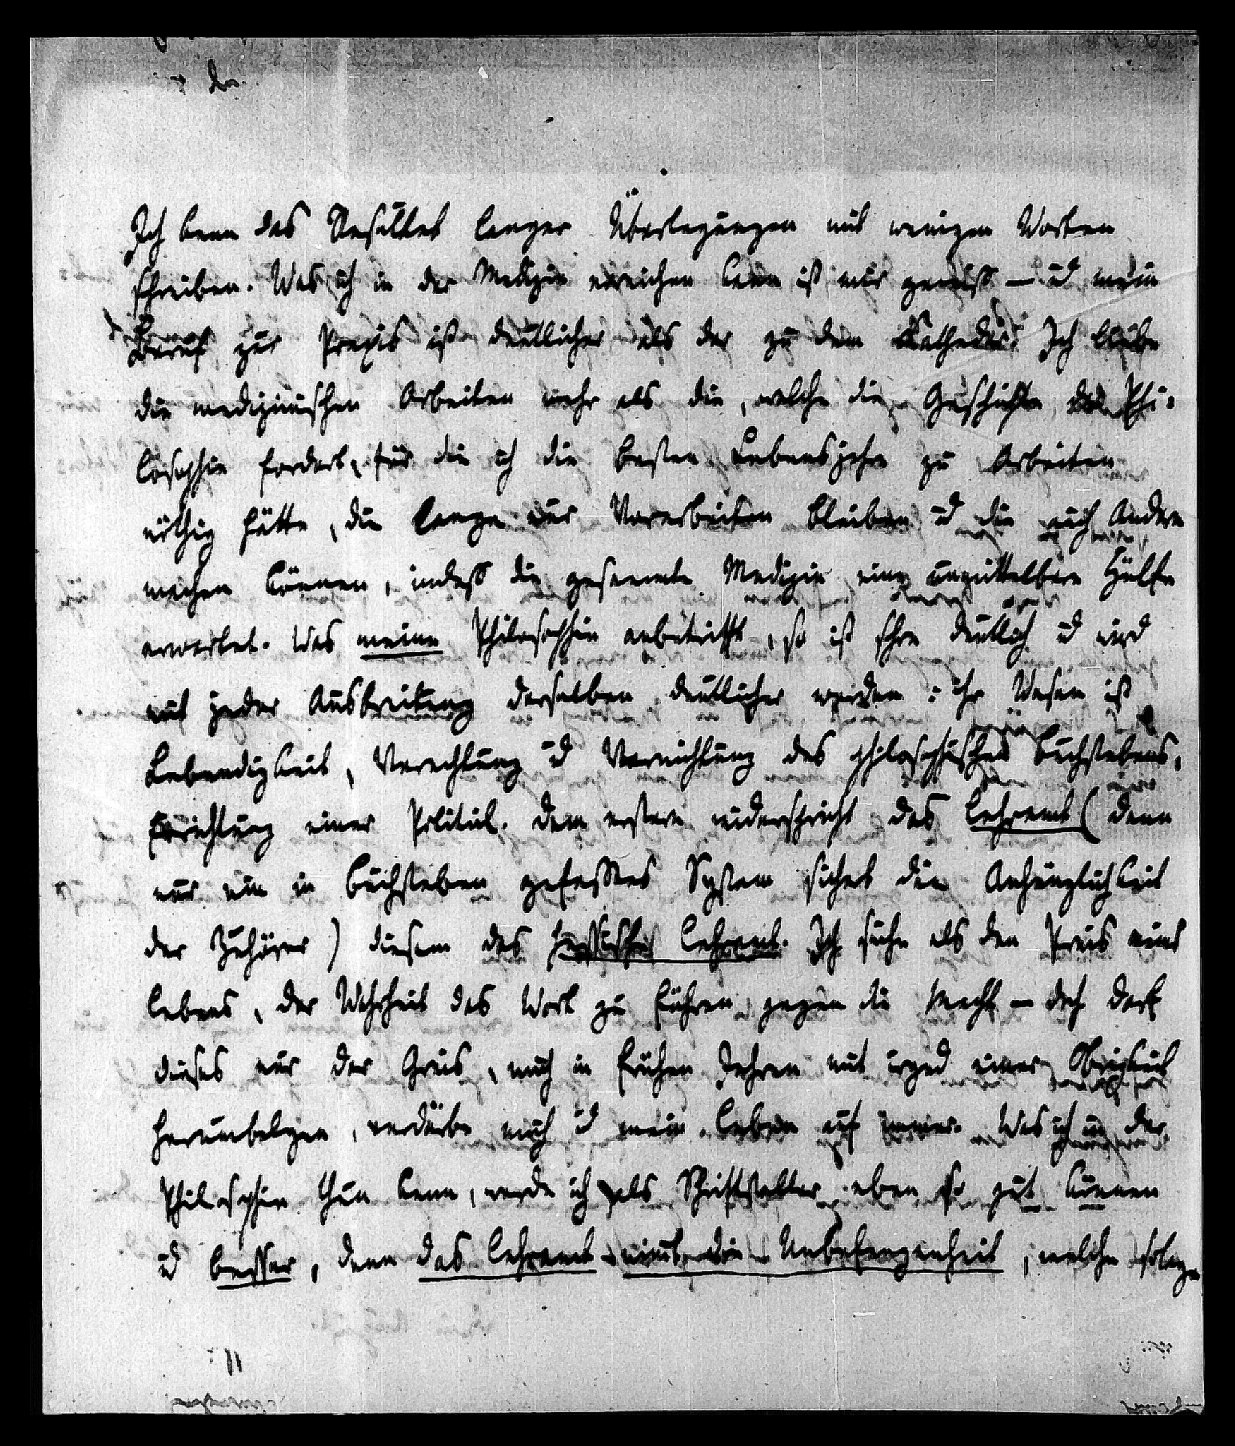 Ich kann das Resultat langer Überlegungen mit wenigen Worten
schreiben. Was ich in der Medizin erreichen kann ist mir gewiß — ud mein
Beruf zur Praxis ist deutlicher als der zu dem Katheder. Ich liebe
die medizinischen Arbeiten mehr als die, welche die Geschichte der Phi-
losophie fordert, für die ich die besten Lebensjahre zu Arbeiten
nöthig hätte, die lange nur Vorarbeiten bleiben ud die auch Andere
machen können, indeß die gesammte Medizin eine unmittelbare Hülfe
erwartet. Was meine Philosophie anbetrifft, so ist schon deutlich ud wird
mit jeder Ausbreitung derselben deutlicher werden: ihr Wesen ist
Lebendigkeit, Verachtung ud Vernichtung des philosophischen Buchstabens,
Errichtung einer Politik. dem erstern widerspricht das Lehramt (denn
nur ein in Buchstaben gefaßtes System sichert die Anhänglichkeit
der Zuhörer) diesem das Lehramt. Ich suche als den Preis eines
Lebens, der Wahrheit das Wort zu führen gegen die Macht — doch darf
dieses nur der Greis, mich in frühen Jahren mit irgend einer Obrigkeit
herumbalgen, verdürbe mich ud mein Leben auf immer. Was ich in der
Philosophie thun kann, werde ich als Schriftsteller eben so gut können
ud besser, denn das Lehramt nimt die Unbefangenheit, welche solange